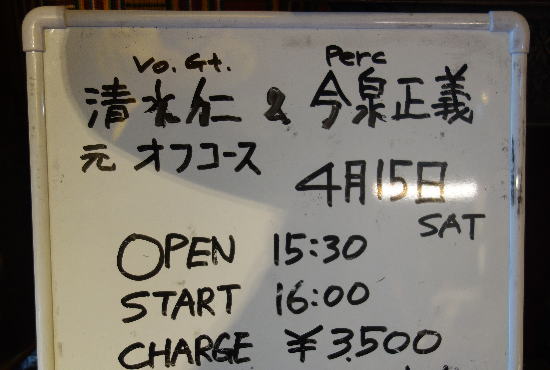 Vo. Gt. Perc
清水仁 & 今泉正義
元 オフコース
4月15日
SAT
OPEN 15:30
START 16:00
CHARGE ¥3,500